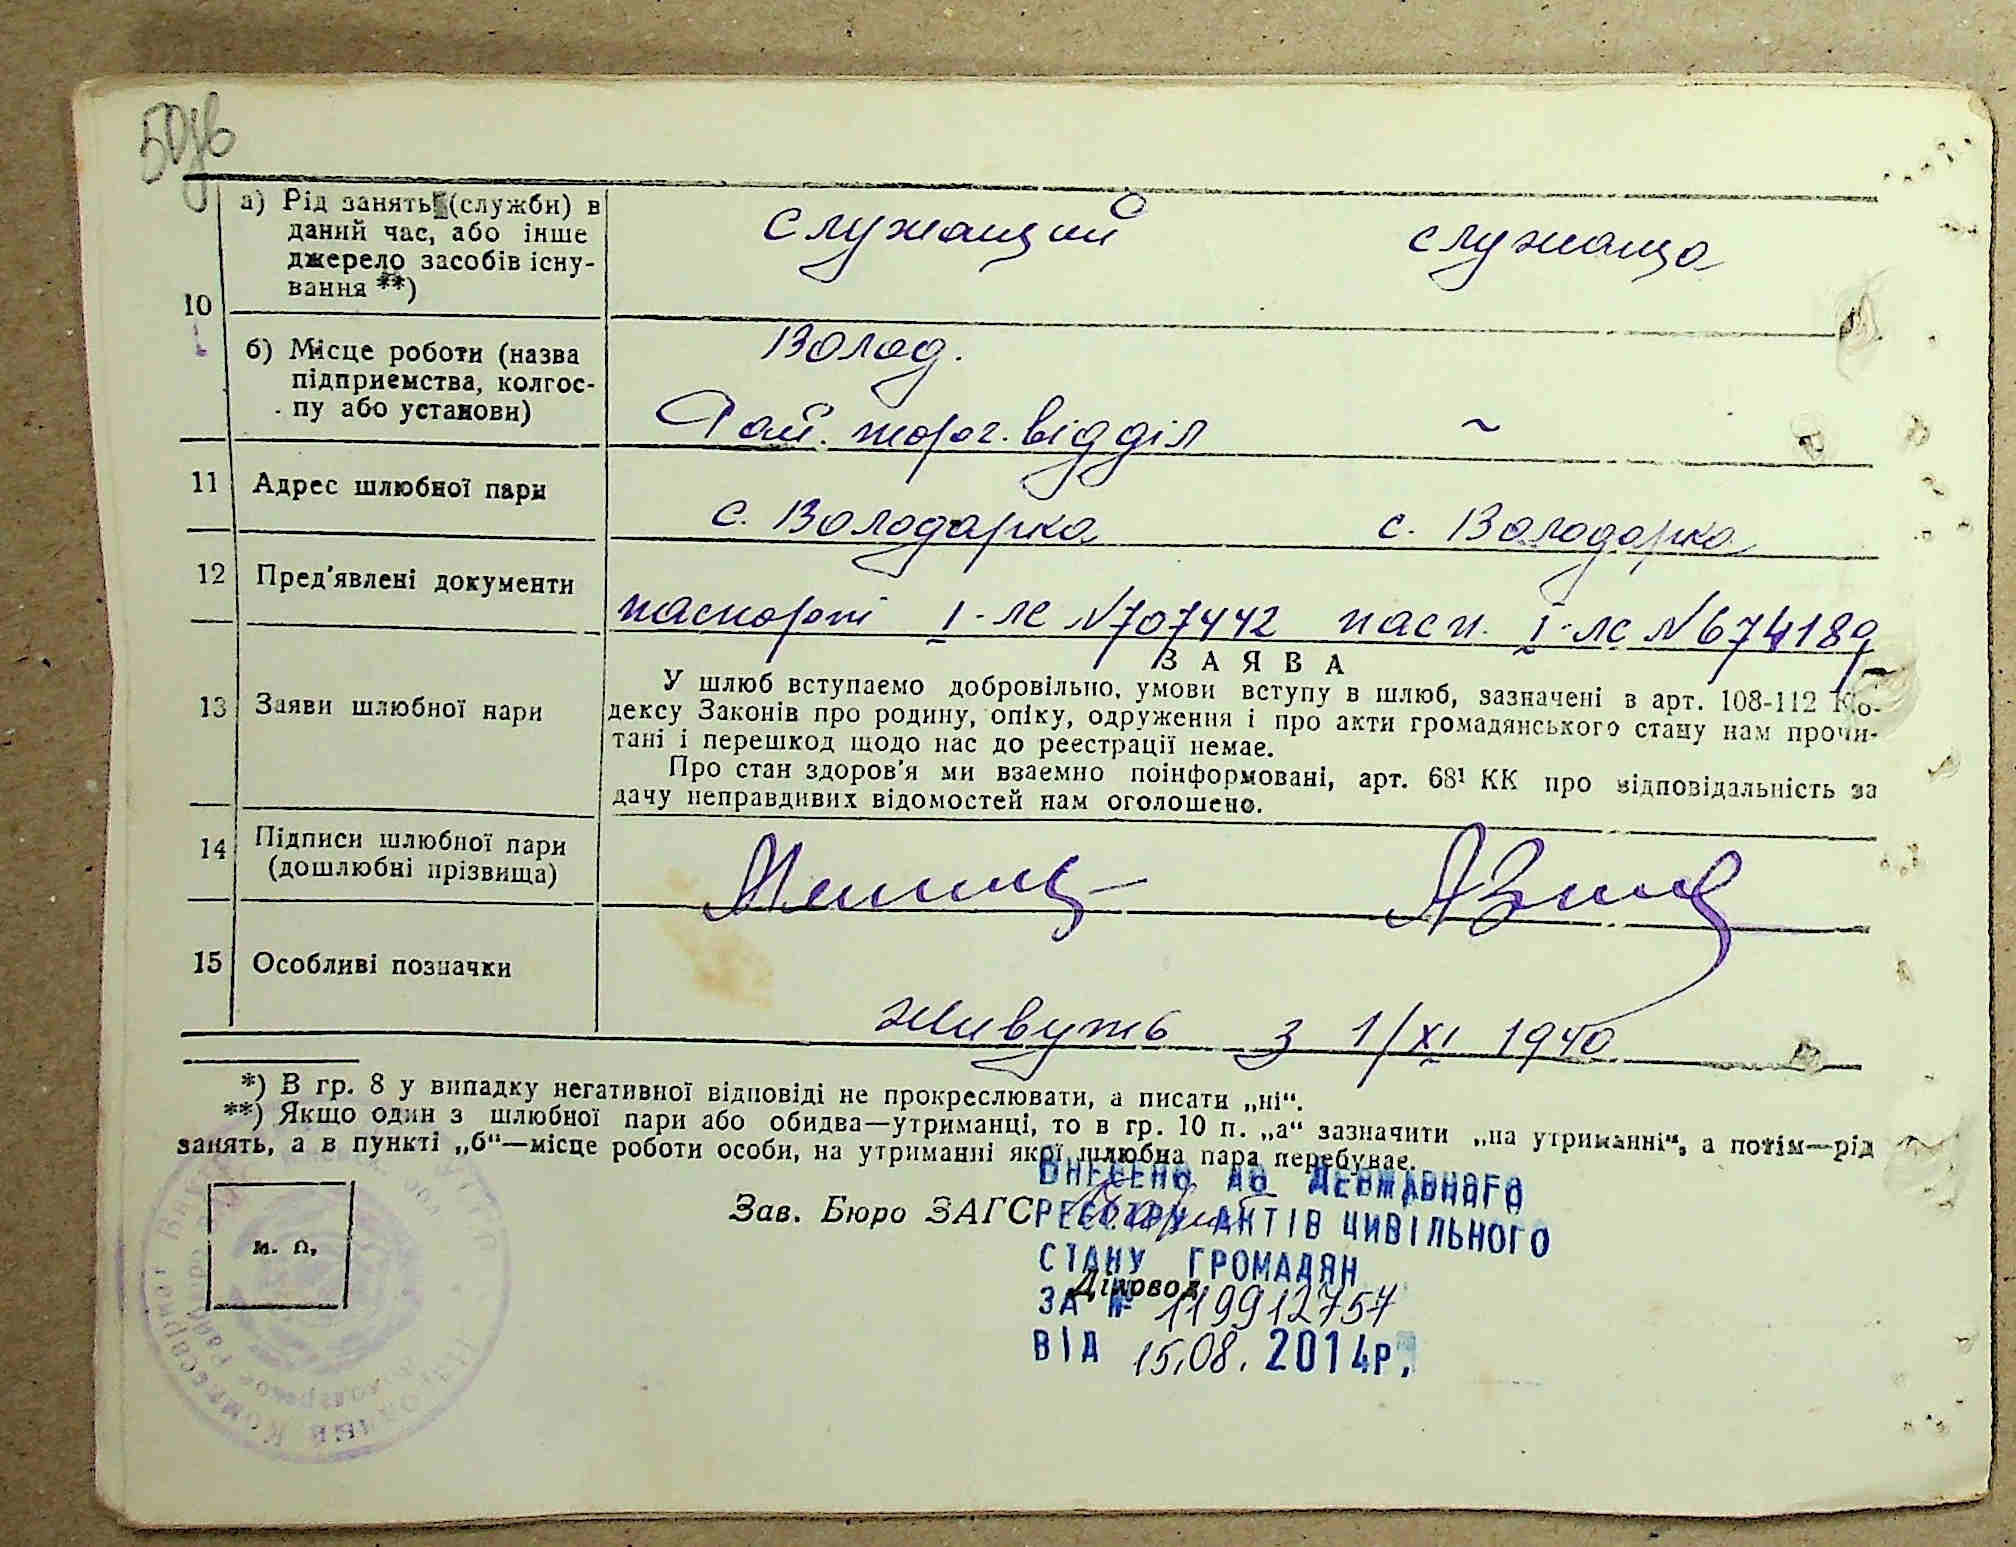 50зв
а) Рід занять (служби) в
даний час, або інше
джерело засобів існу-
вання **)
служащий служаща
10
б) Місце роботи (назва
підприємства, колгос-
пу або установи)
Волод.
Рай. торг. відділ ~
11 Адрес шлюбної пари с. Володарка с. Володарка
12 Пред'явлені документи паспорті I-ЛС №707442 пасп. I-ЛС №674189
13 Заяви шлюбної пари
ЗАЯВА
У шлюб вступаємо добровільно, умови вступу в шлюб, зазначені в арт. 108-112 Ко-
дексу Законів про родину, опіку, одруження і про акти громадянського стану нам прочи-
тані і перешкод щодо нас до реєстрації немає.
Про стан здоров'я ми взаємно поінформовані, арт. 68¹ КК про відповідальність за
дачу неправдивих відомостей нам оголошено.
14 Підписи шлюбної пари
(дошлюбні прізвища)
15 Особливі позначки
живуть з 1/XI 1940
*) В гр. 8 у випадку негативної відповіді не прокреслювати, а писати „ні“.
**) Якщо один з шлюбної пари або обидва—утриманці, то в гр. 10 п. „а“ зазначити „на утриманні“, а потім—рід
занять, а в пункті „б“—місце роботи особи, на утриманні якої шлюбна пара перебуває.
Зав. Бюро ЗАГС
м. п.
Діловод
ВНЕСЕНО ДО ДЕРЖАВНОГО
РЕЄСТРУ АКТІВ ЦИВІЛЬНОГО
СТАНУ ГРОМАДЯН
ЗА № 119912757
ВІД 15.08. 2014р.